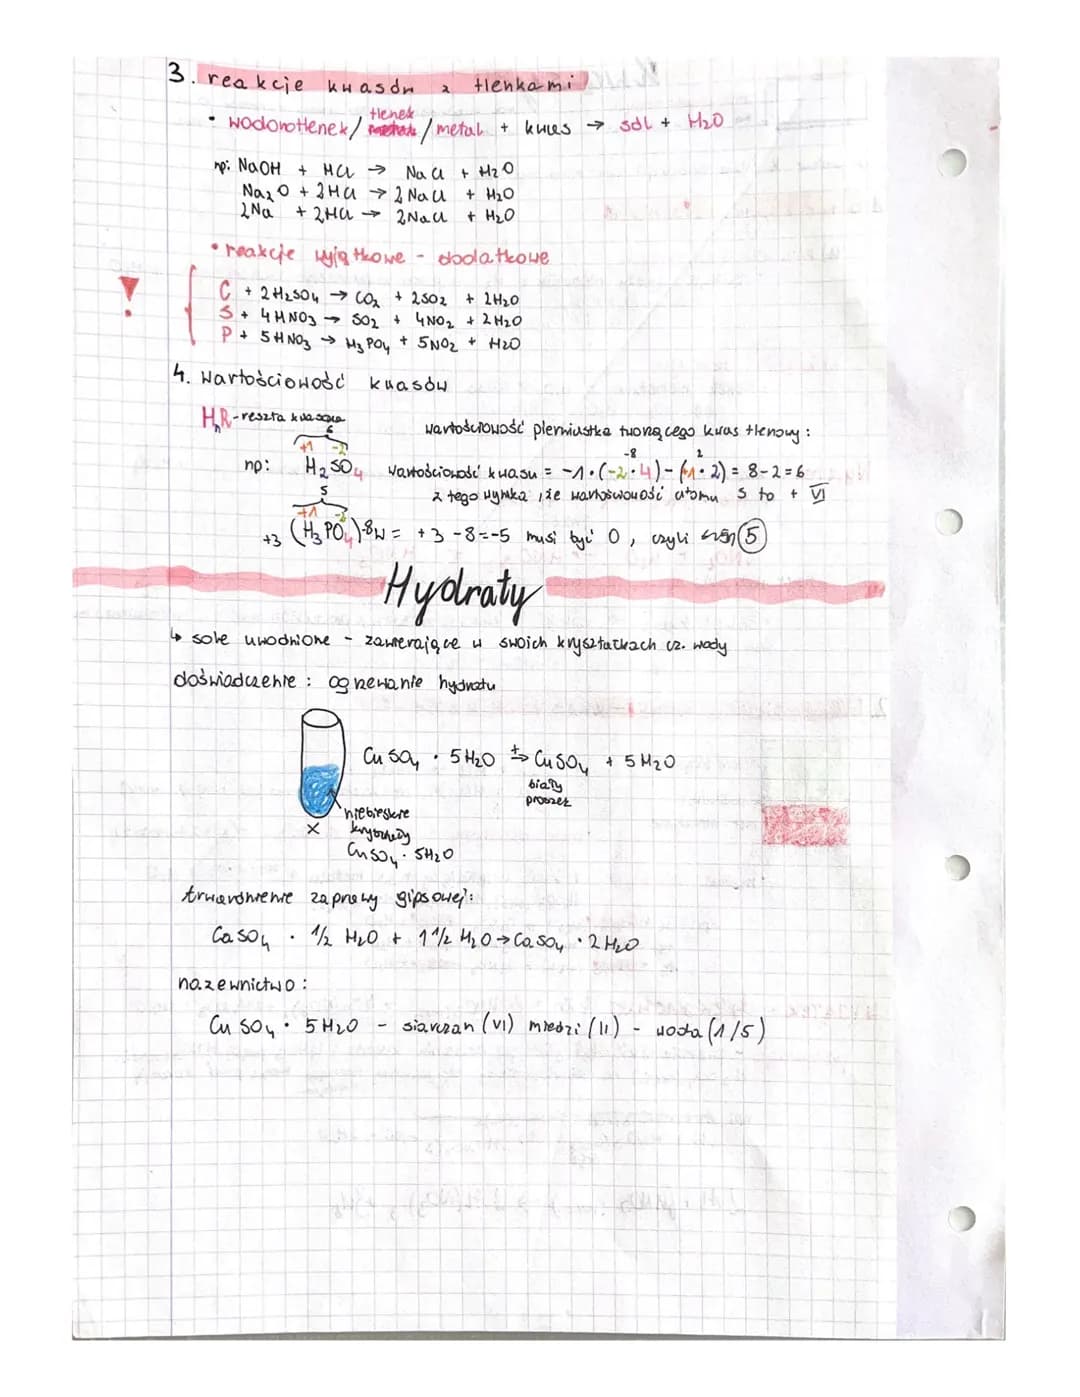 3. reakcje kwasów z tlenkami
• wodorotlenek/ tlenek / metal + kwas → sól + H2O
np: NaOH + HCl → NaCl + H2O
Na2O + 2HCl → 2NaCl + H2O
2Na + 2HCl → 2NaCl + H2O
• reakcje wyjątkowe - dodatkowe
! C + 2H2SO4 → CO2 + 2SO2 + 2H2O
S + 4HNO3 → SO2 + 4NO2 + 2H2O
P + 5HNO3 → H3PO4 + 5NO2 + H2O
4. Wartościowość kwasów
HnR - reszta kwasowa
wartościowość pierwiastka tworzącego kwas tlenowy:
6
+1 -2 -8 2
np: H2SO4 wartościowość kwasu = -1·(-2·4)-(+1·2) = 8-2=6
z tego wynika, że wartościowość atomu S to + VI
5
+1 -2
+3 (H3PO4)-8 W = +3-8=-5 musi być 0, czyli 5
Hydraty
↳ sole uwodnione - zawierające w swoich kryształkach cz. wody
doświadczenie: ogrzewanie hydratu
CuSO4 · 5H2O →t CuSO4 + 5H2O
biały
proszek
niebieskie
kryształy
CuSO4 · 5H2O
twardnienie zaprawy gipsowej:
CaSO4 · 1/2 H2O + 1 1/2 H2O → CaSO4 · 2H2O
nazewnictwo:
CuSO4 · 5H2O - siarczan (VI) miedzi (II) - woda (1/5)